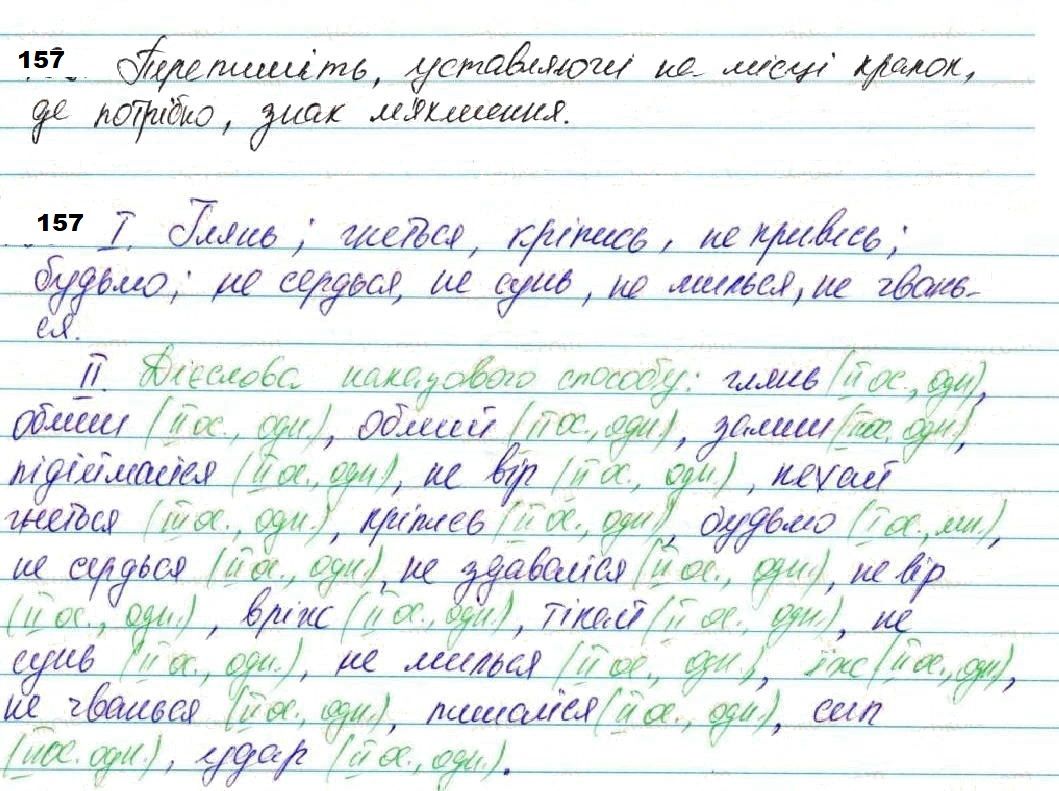 157 Перепишіть, уставляючи на місці крапок,
де потрібно, знак м'якшення.
157 I. Глянь; гнеться, кріпись, не кривись;
будьмо; не сердься, не сунь, не милься, не чвань-
ся.
II. Дієслова наказового способу: глянь (II ос., одн),
облиш (II ос., одн), обмий (II ос., одн), залиш (II ос, одн),
підіймайся (II ос., одн), не вір (II ос., одн), нехай
гнеться (III ос., одн.), кріпись (II ос., одн), будьмо (I ос., мн),
не сердься (II ос., одн), не здавайся (II ос., одн), не вір
(II ос., одн.), вріж (II ос., одн), тікай (II ос., одн.), не
сунь (II ос., одн.), не милься (II ос., одн.), їж (II ос., одн),
не чванься (II ос., одн), пишайся (II ос., одн), сип
(II ос. одн.), удар (II ос., одн.).